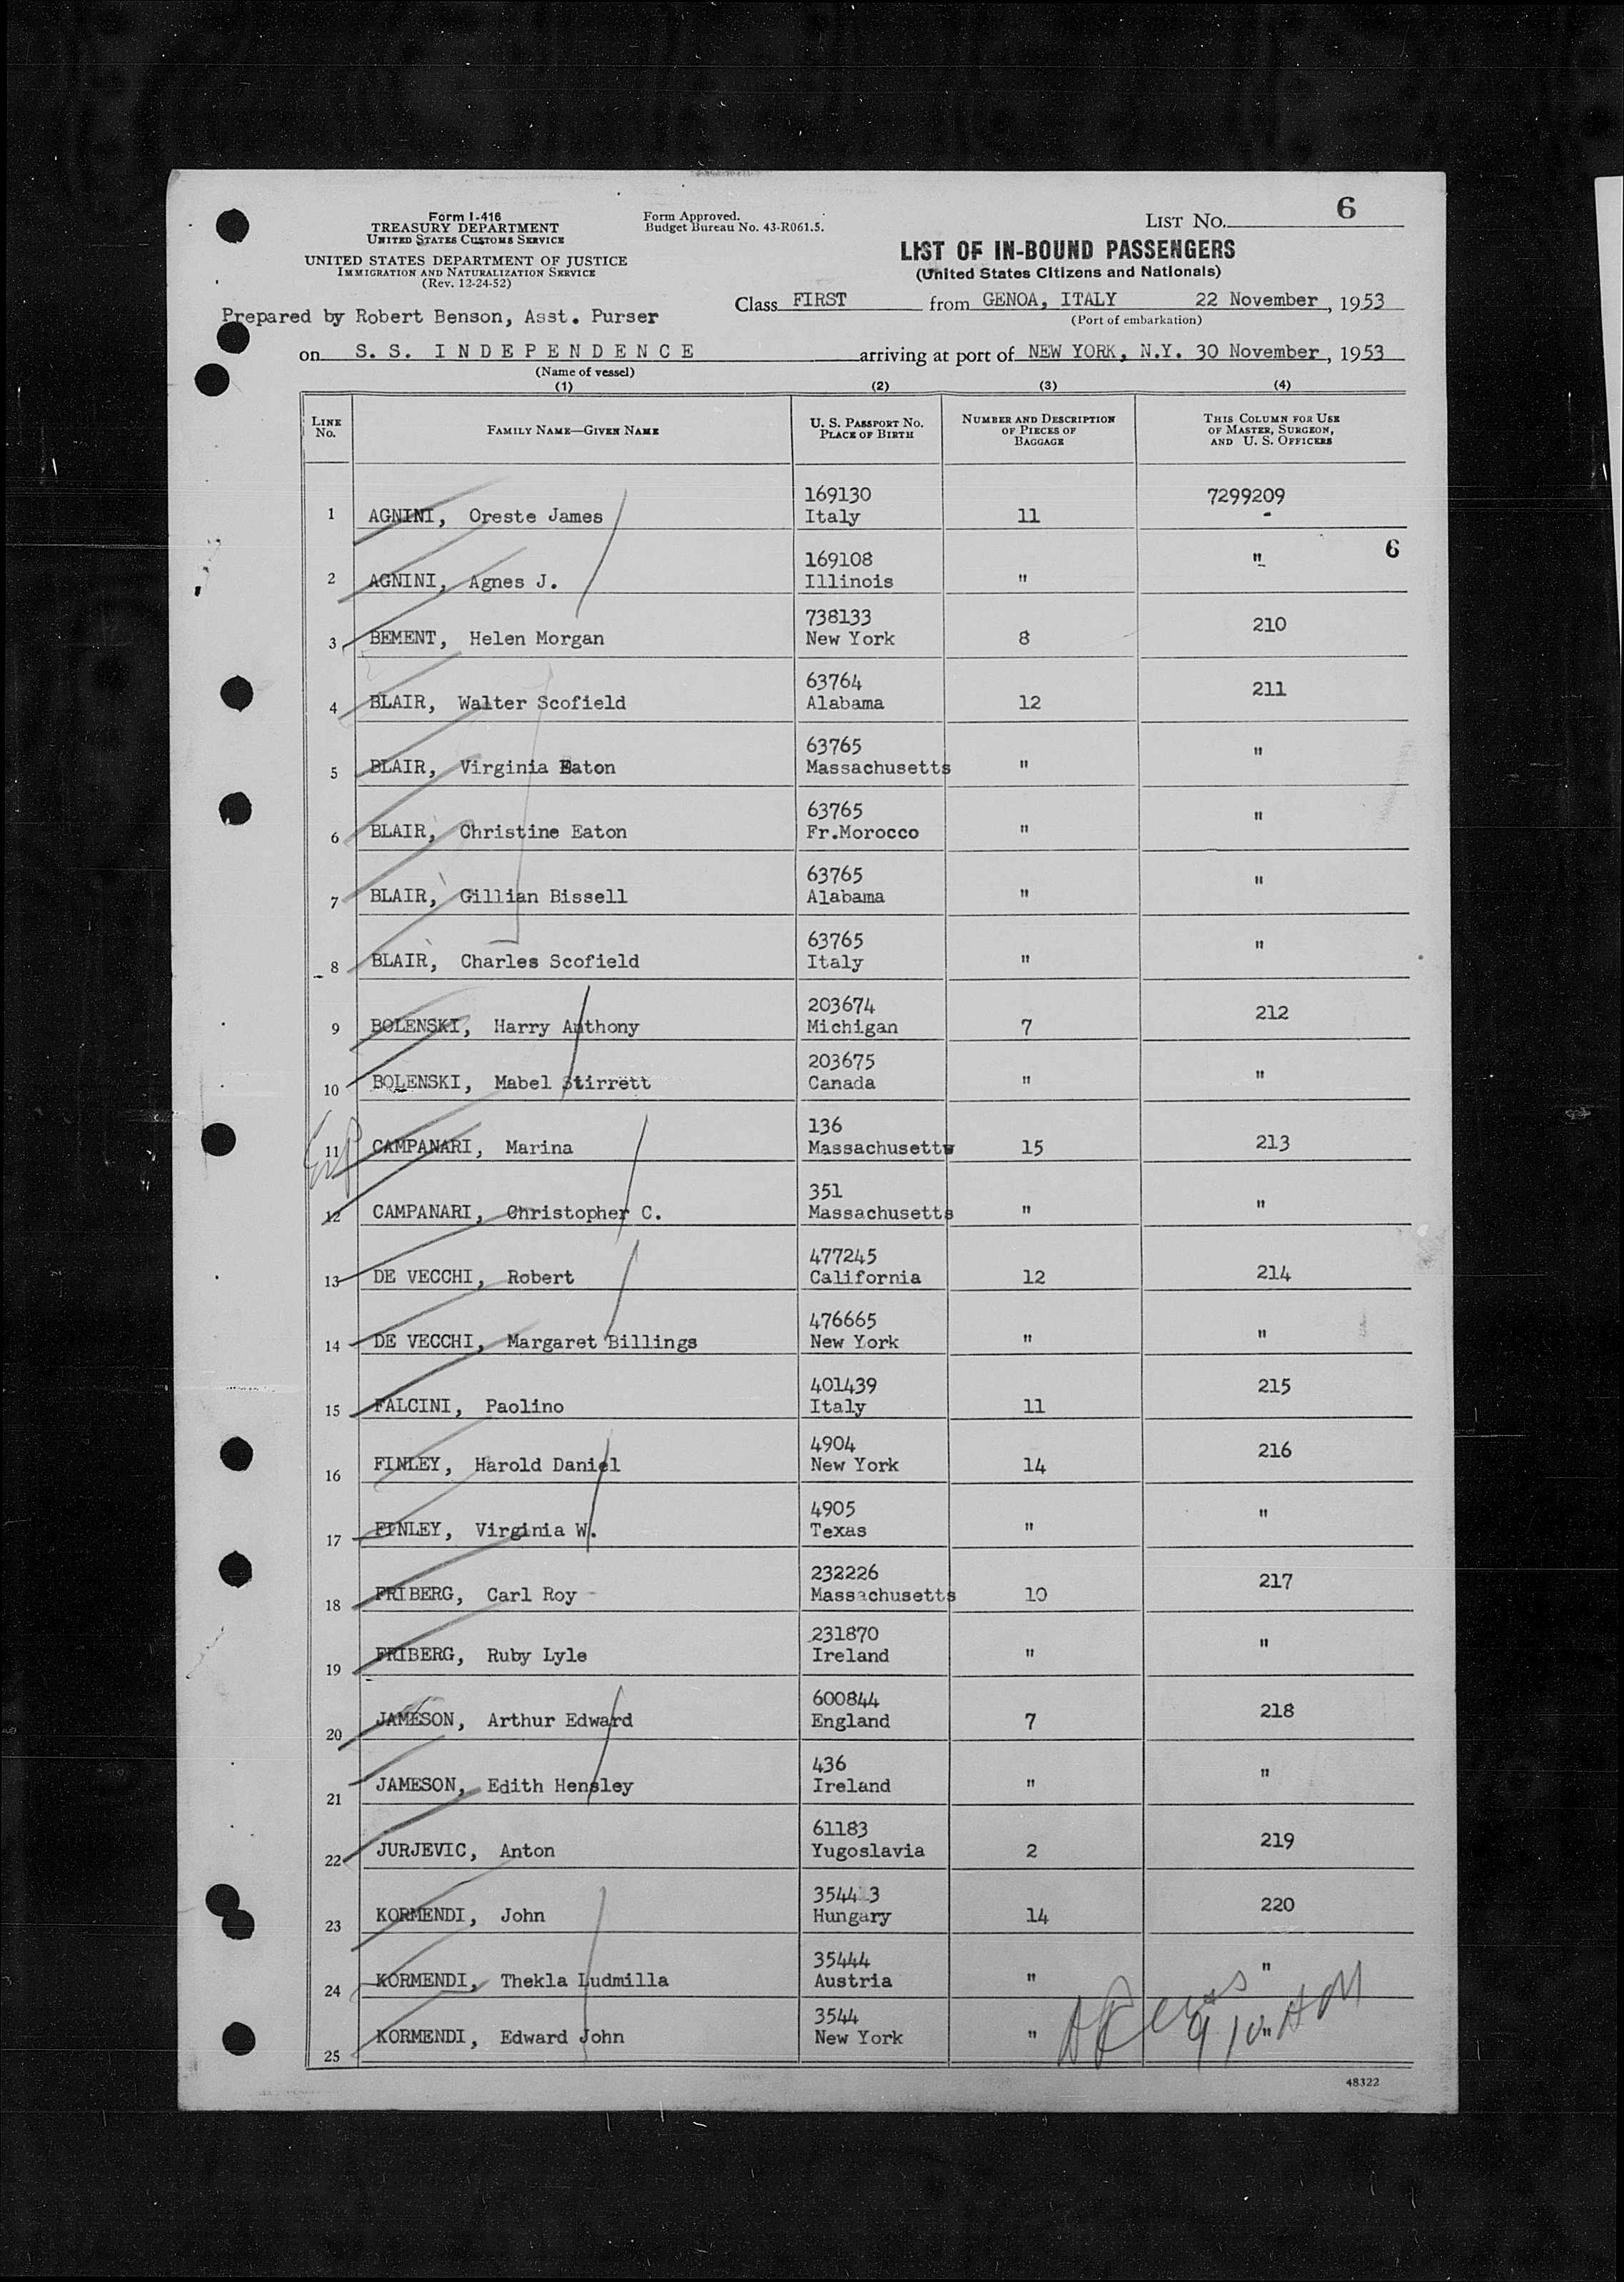 Form I-416
TREASURY DEPARTMENT
UNITED STATES CUSTOMS SERVICE
UNITED STATES DEPARTMENT OF JUSTICE
IMMIGRATION AND NATURALIZATION SERVICE
(Rev. 12-24-52)
Form Approved.
Budget Bureau No. 43-R061.5.
LIST NO. 6
LIST OF IN-BOUND PASSENGERS
(United States Citizens and Nationals)
Class FIRST from GENOA, ITALY 22 November, 1953
(Port of embarkation)
Prepared by Robert Benson, Asst. Purser
on S. S. I N D E P E N D E N C E arriving at port of NEW YORK, N.Y. 30 November, 1953
(Name of vessel)
(1) (2) (3) (4)
LINE NO. FAMILY NAME—GIVEN NAME U. S. PASSPORT NO. PLACE OF BIRTH NUMBER AND DESCRIPTION OF PIECES OF BAGGAGE THIS COLUMN FOR USE OF MASTER, SURGEON, AND U. S. OFFICERS
169130 7299209
1 AGNINI, Oreste James Italy 11 -
6
169108 "
2 AGNINI, Agnes J. Illinois "
738133 210
3 BEMENT, Helen Morgan New York 8
63764 211
4 BLAIR, Walter Scofield Alabama 12
63765 "
5 BLAIR, Virginia Eaton Massachusetts "
63765 "
6 BLAIR, Christine Eaton Fr.Morocco "
63765 "
7 BLAIR, Gillian Bissell Alabama "
63765 "
8 BLAIR, Charles Scofield Italy "
203674 212
9 BOLENSKI, Harry Anthony Michigan 7
203675 "
10 BOLENSKI, Mabel Stirrett Canada "
136 213
11 CAMPANARI, Marina Massachusetts 15
351 "
12 CAMPANARI, Christopher C. Massachusetts "
477245 214
13 DE VECCHI, Robert California 12
476665 "
14 DE VECCHI, Margaret Billings New York "
401439 215
15 FALCINI, Paolino Italy 11
4904 216
16 FINLEY, Harold Daniel New York 14
4905 "
17 FINLEY, Virginia W. Texas "
232226 217
18 FRIBERG, Carl Roy Massachusetts 10
231870 "
19 FRIBERG, Ruby Lyle Ireland "
600844 218
20 JAMESON, Arthur Edward England 7
436 "
21 JAMESON, Edith Hensley Ireland "
61183 219
22 JURJEVIC, Anton Yugoslavia 2
3544 3 220
23 KORMENDI, John Hungary 14
35444 "
24 KORMENDI, Thekla Ludmilla Austria "
3544
25 KORMENDI, Edward John New York " "
48322